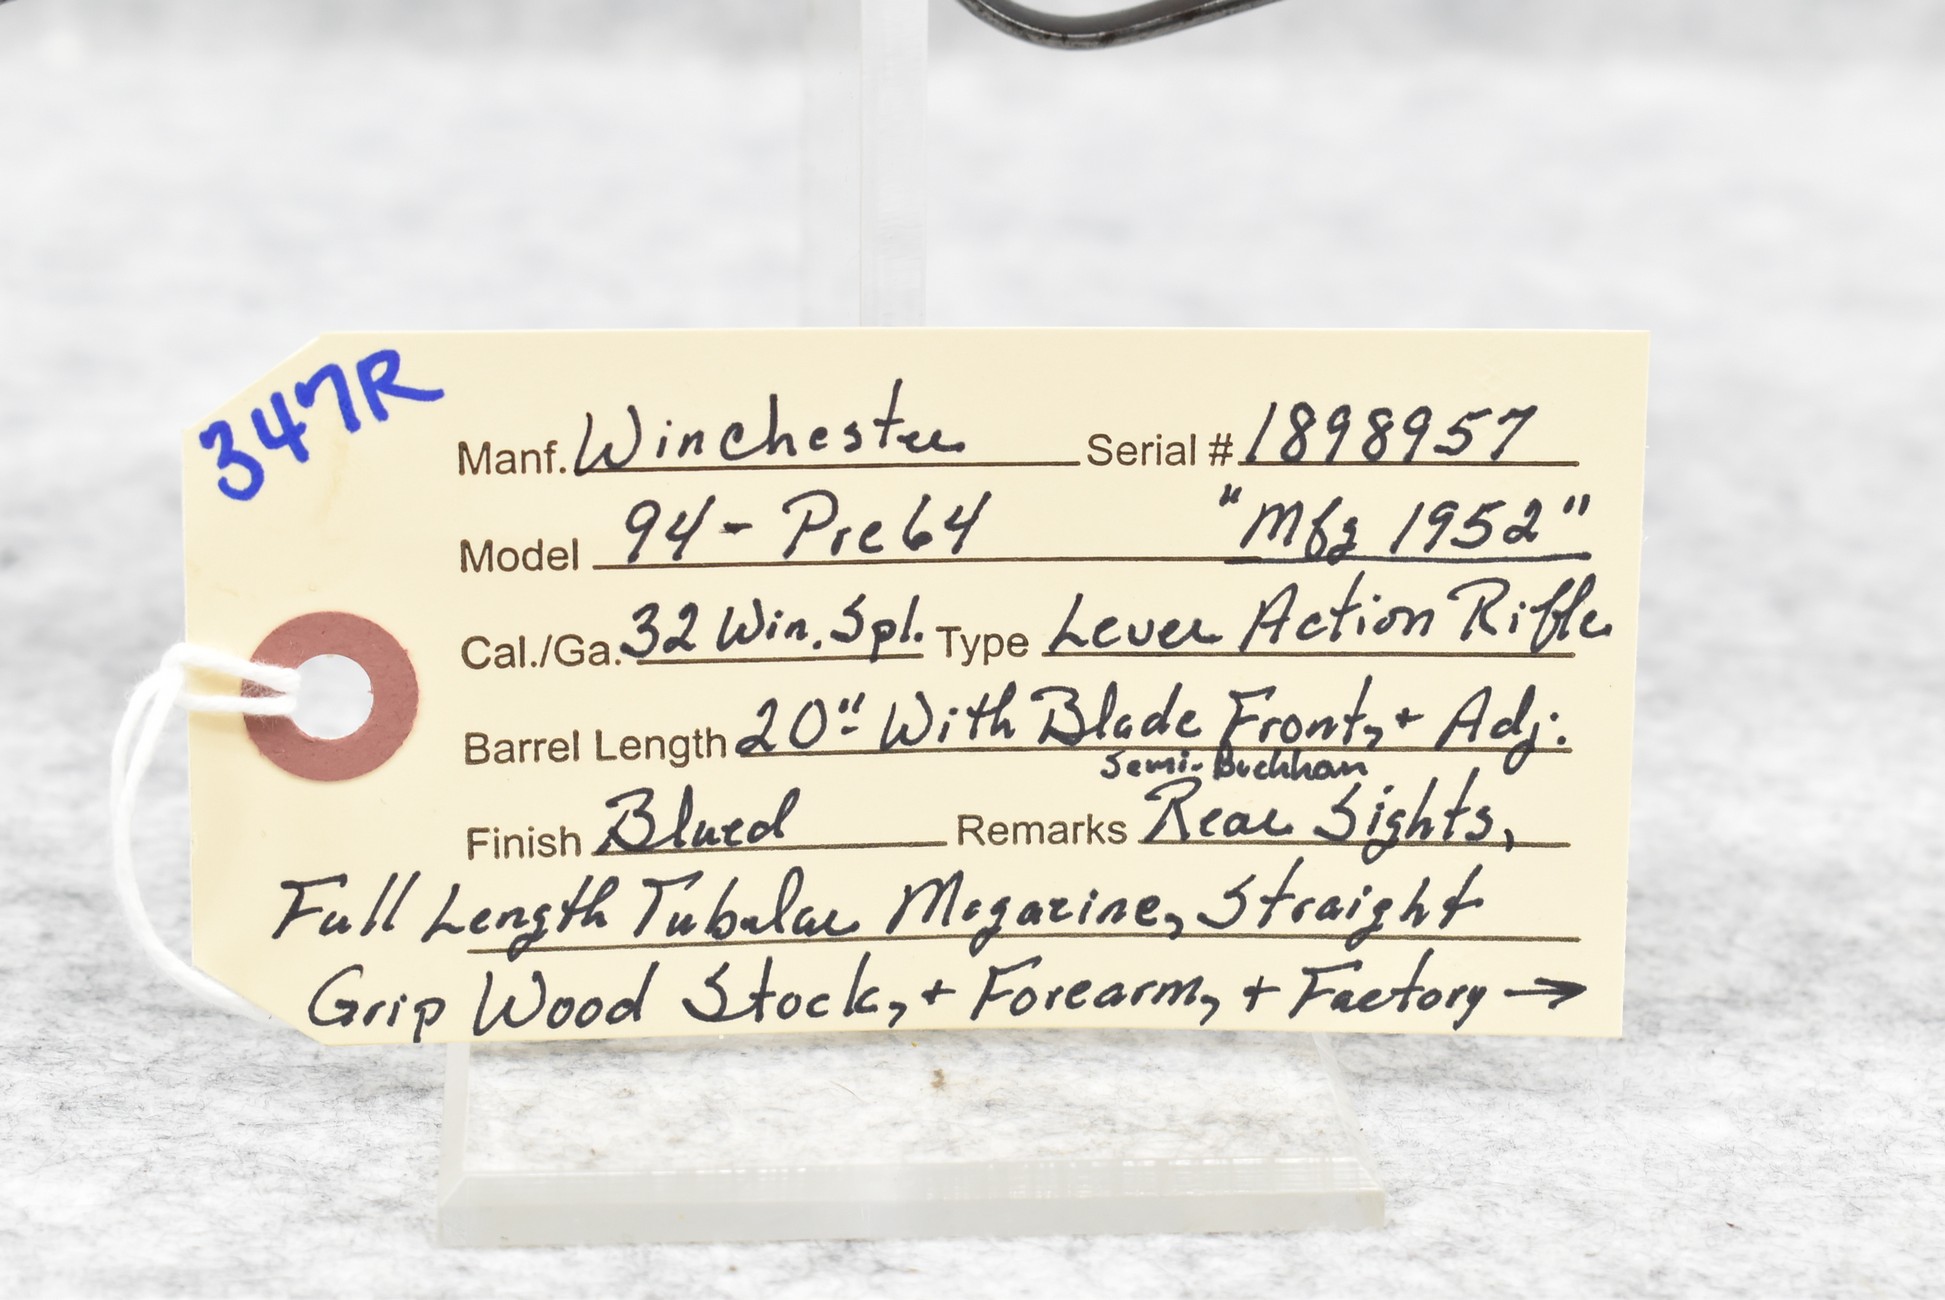 347R
Manf. Winchester Serial # 1898957
Model 94 - Pre 64 "Mfg 1952"
Cal./Ga. 32 Win. Spl. Type Lever Action Rifle
Barrel Length 20" With Blade Front, + Adj.
Semi-Buckhan
Finish Blued Remarks Rear Sights,
Full Length Tubular Magazine, Straight
Grip Wood Stock, + Forearm, + Factory →